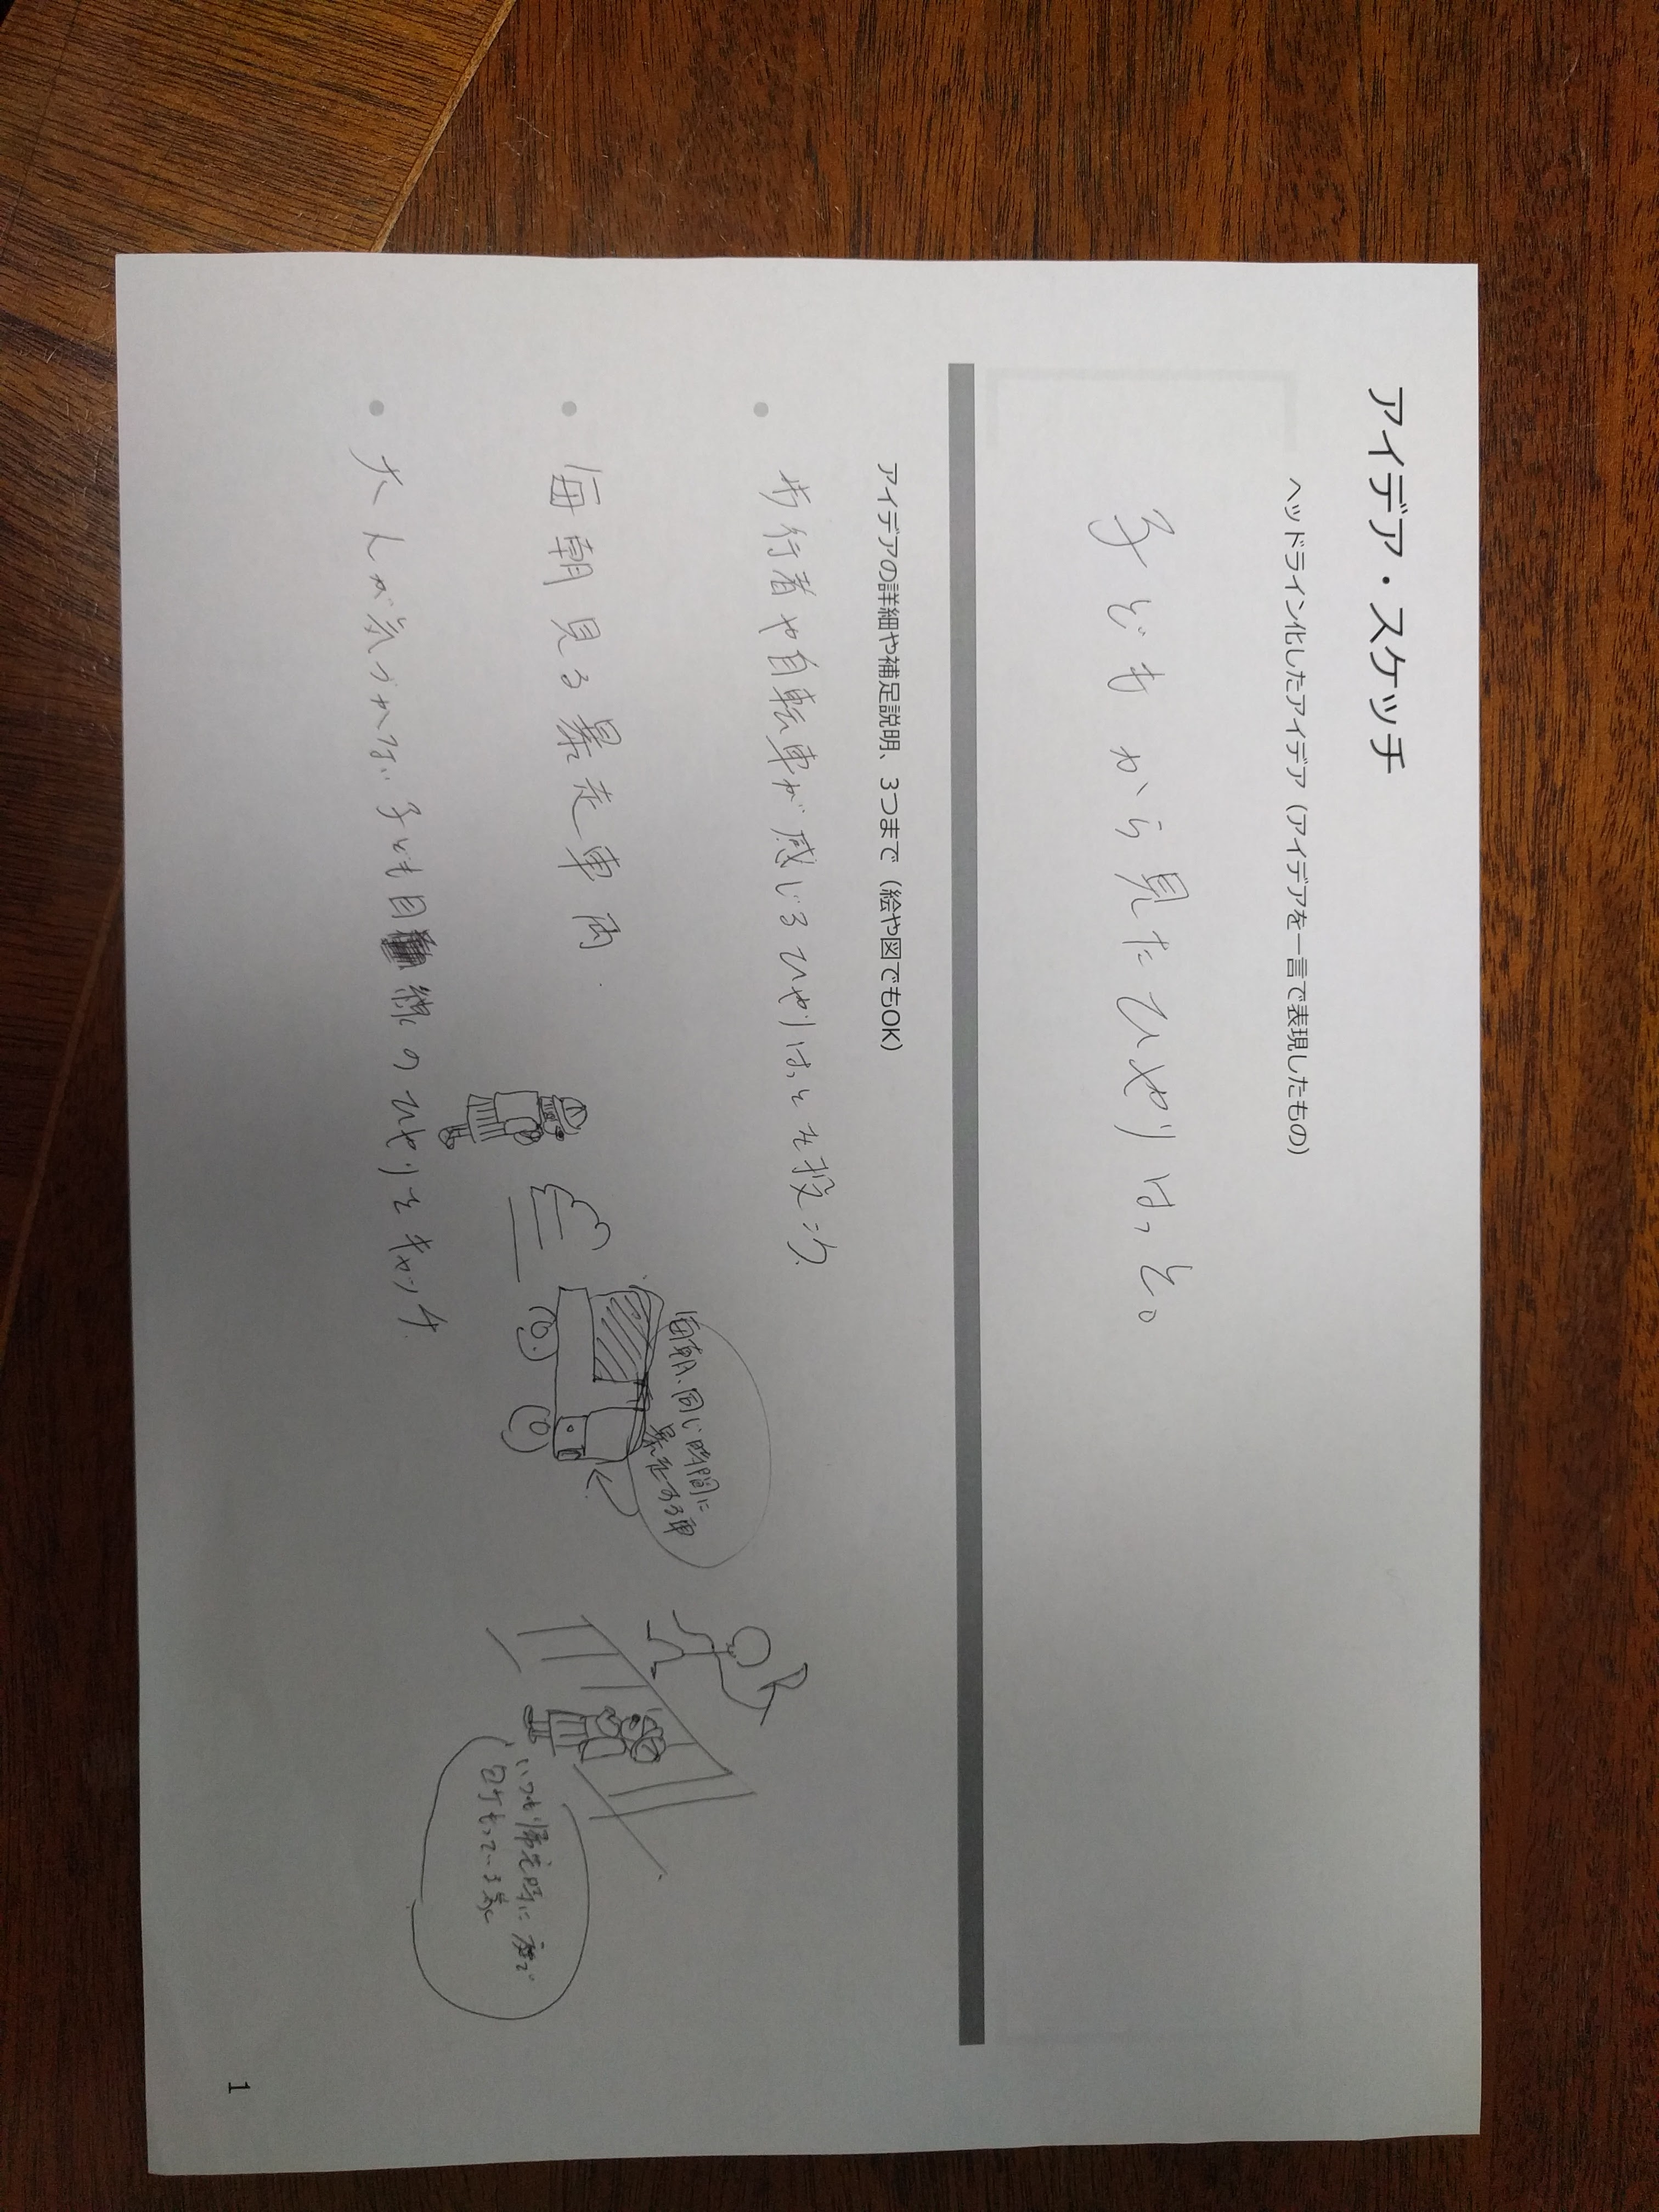 アイデア・スケッチ
ヘッドライン化したアイデア（アイデアを一言で表現したもの）
子どもから見たひやりはっと。
アイデアの詳細や補足説明、3つまで（絵や図でもOK）
• 歩行者や自転車が感じるひやりはっとを投こう
• 毎朝見る暴走車両
• 大人が気づかない子ども目線のひやりをキャッチ
毎朝、同じ時間に
暴走する車
いつも帰宅時に
包丁もっている
1